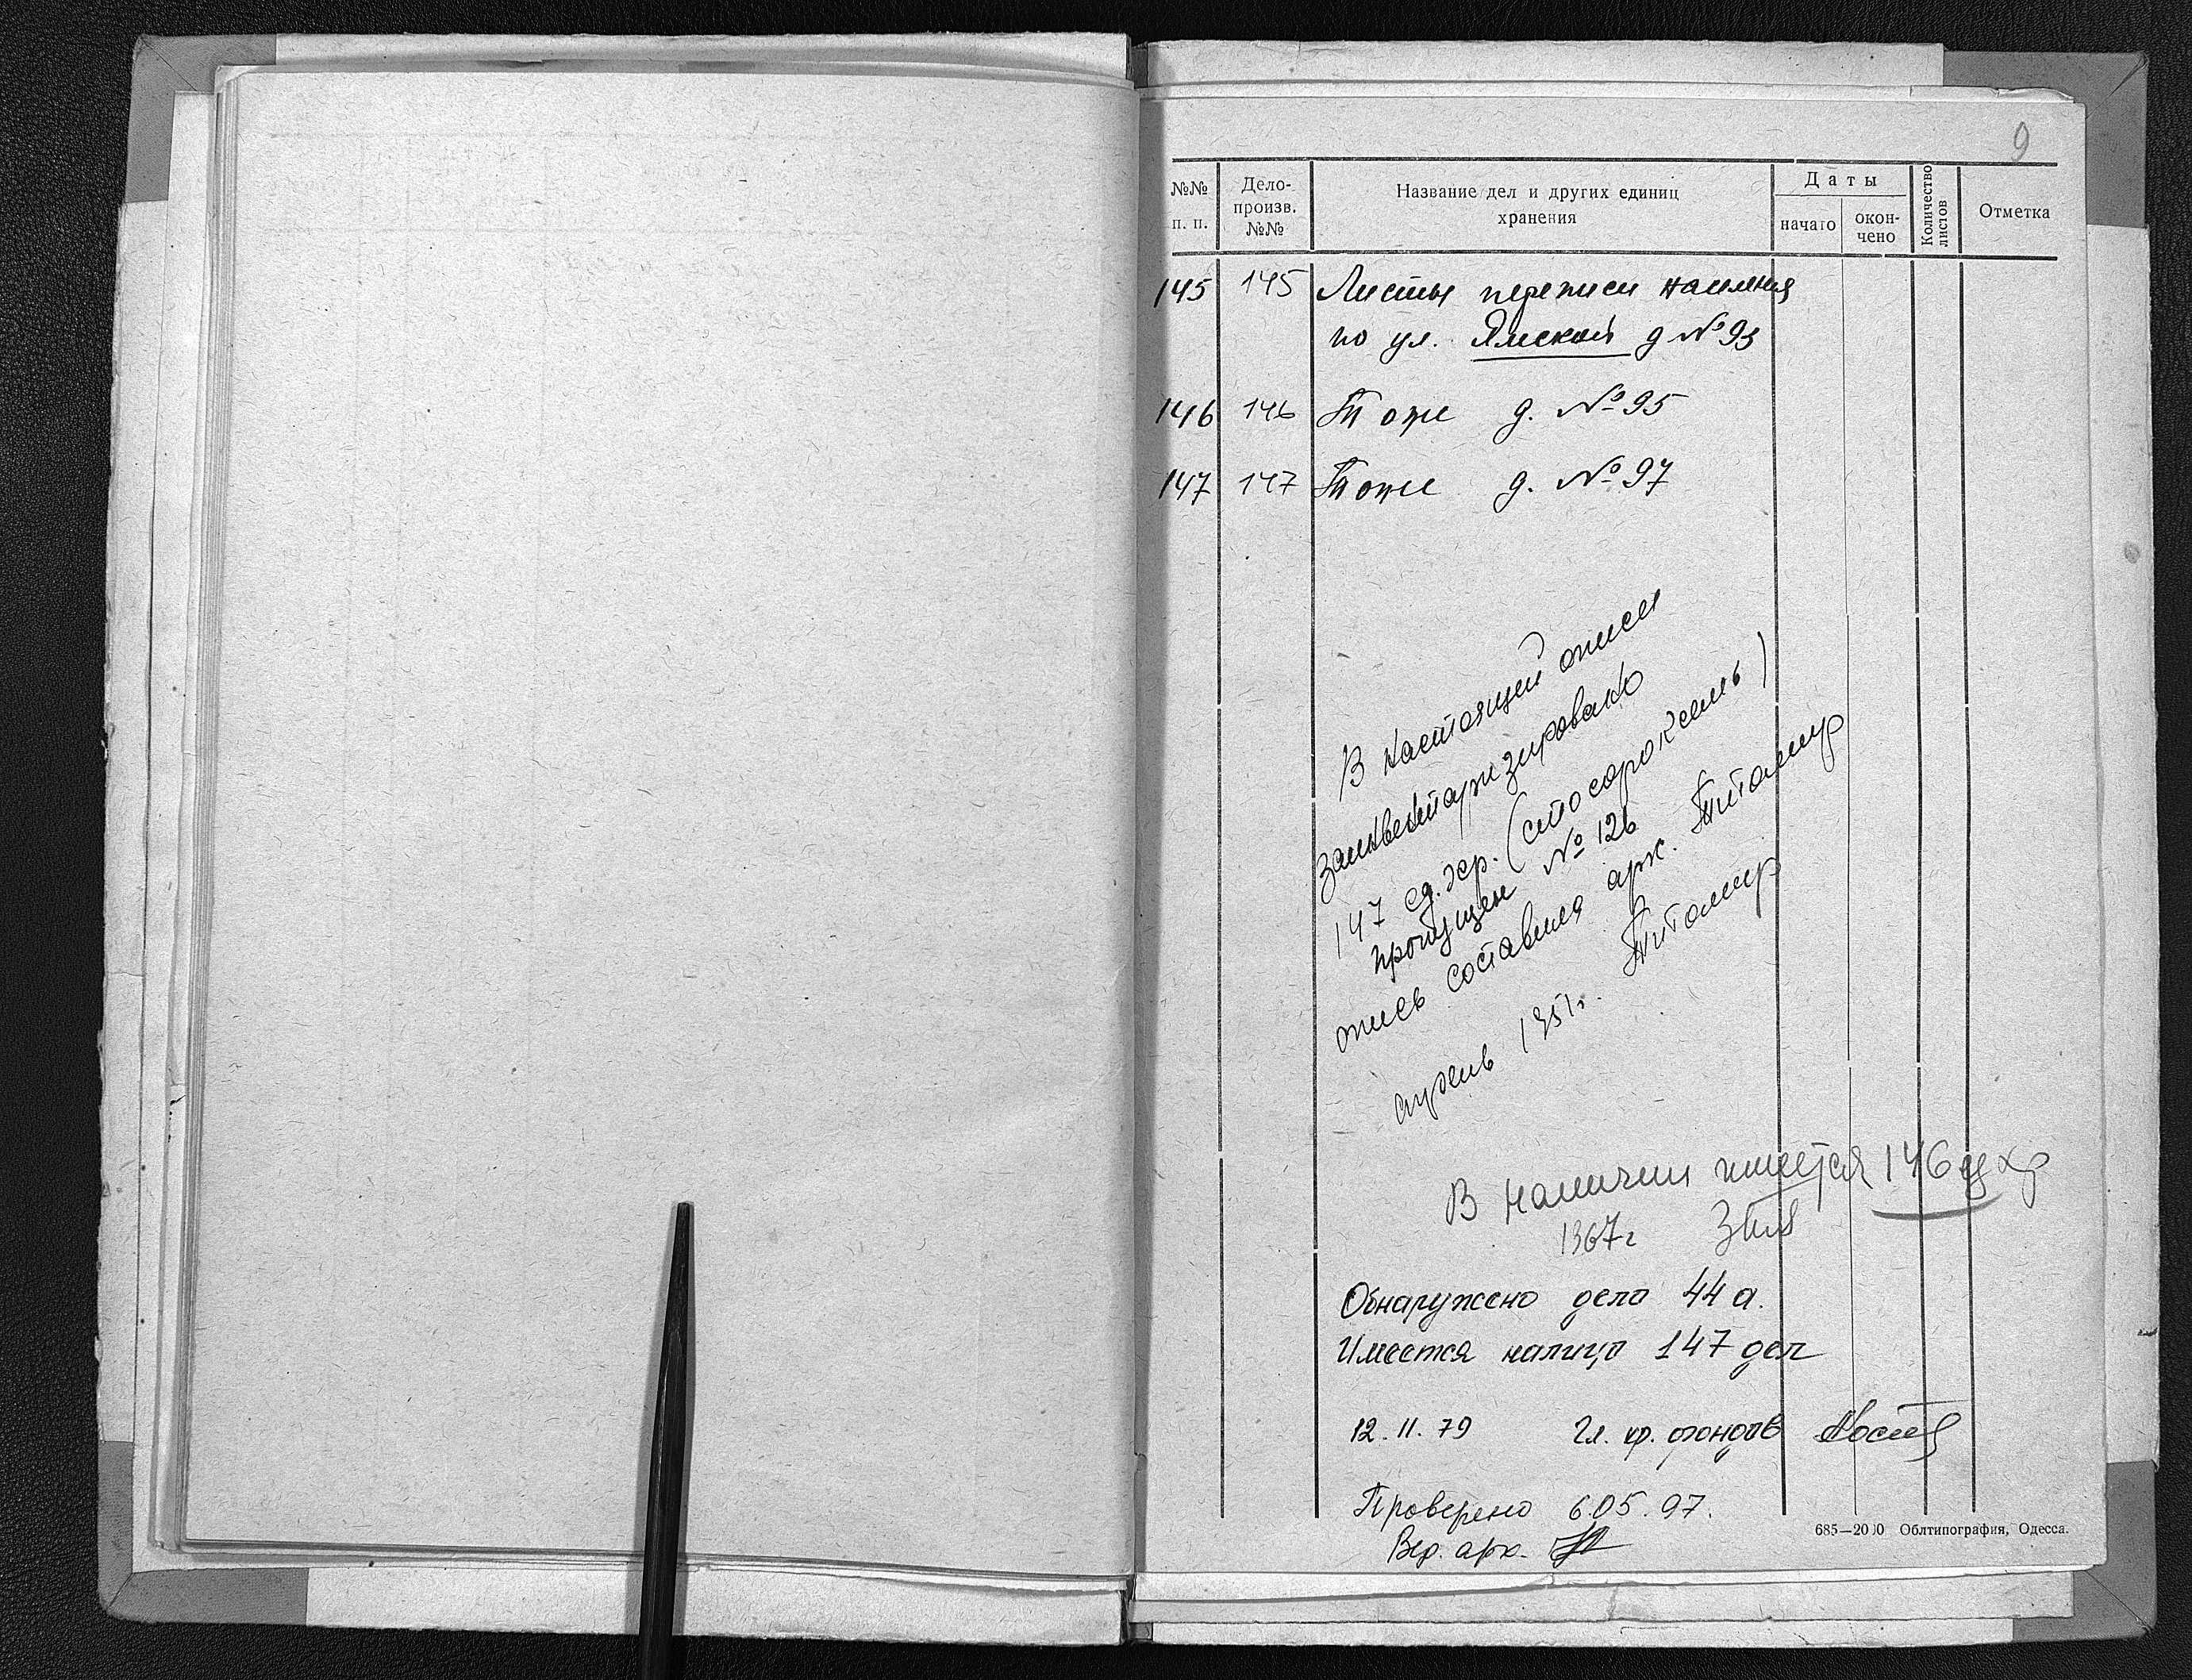 9
№№ п. п. Дело-произв. №№ Название дел и других единиц хранения Даты начато окон-чено Количество листов Отметка
145 145 Листы переписи населения
по ул. Ямской д №93
146 146 Тоже д. №95
147 147 Тоже д. №97
В настоящей описи
заинвентаризировано
147 ед. хр. (сто сорок семь)
пропущен № 126
опись составила арх. Титомир
апрель 1951г. Титомир
В наличии имеется 146 ед хр
1967г
Обнаружено дело 44а.
Имеется налицо 147 дел
12.11.79 Гл. хр. фондов
Проверено 6.05.97.
Вед. арх.
685—2000 Облтипография, Одесса.